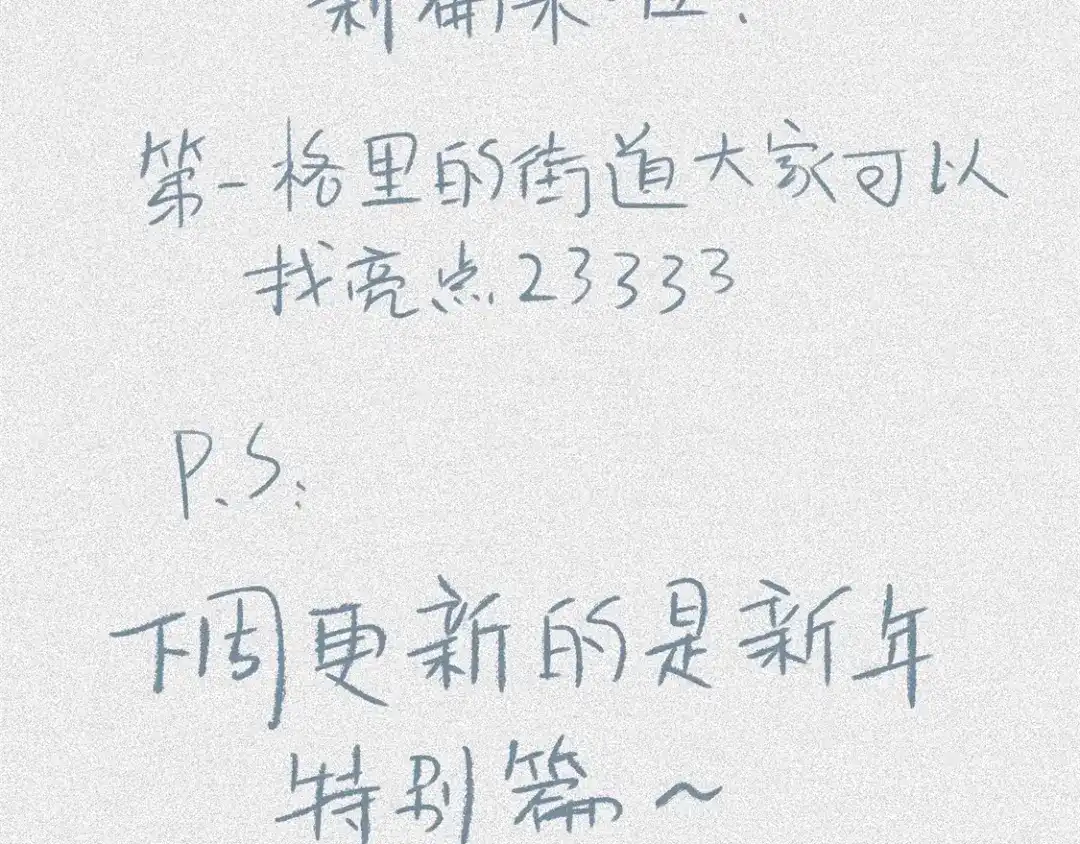 新篇来啦!
第一格里的街道大家可以
找亮点23333
P.S:
下周更新的是新年
特别篇~